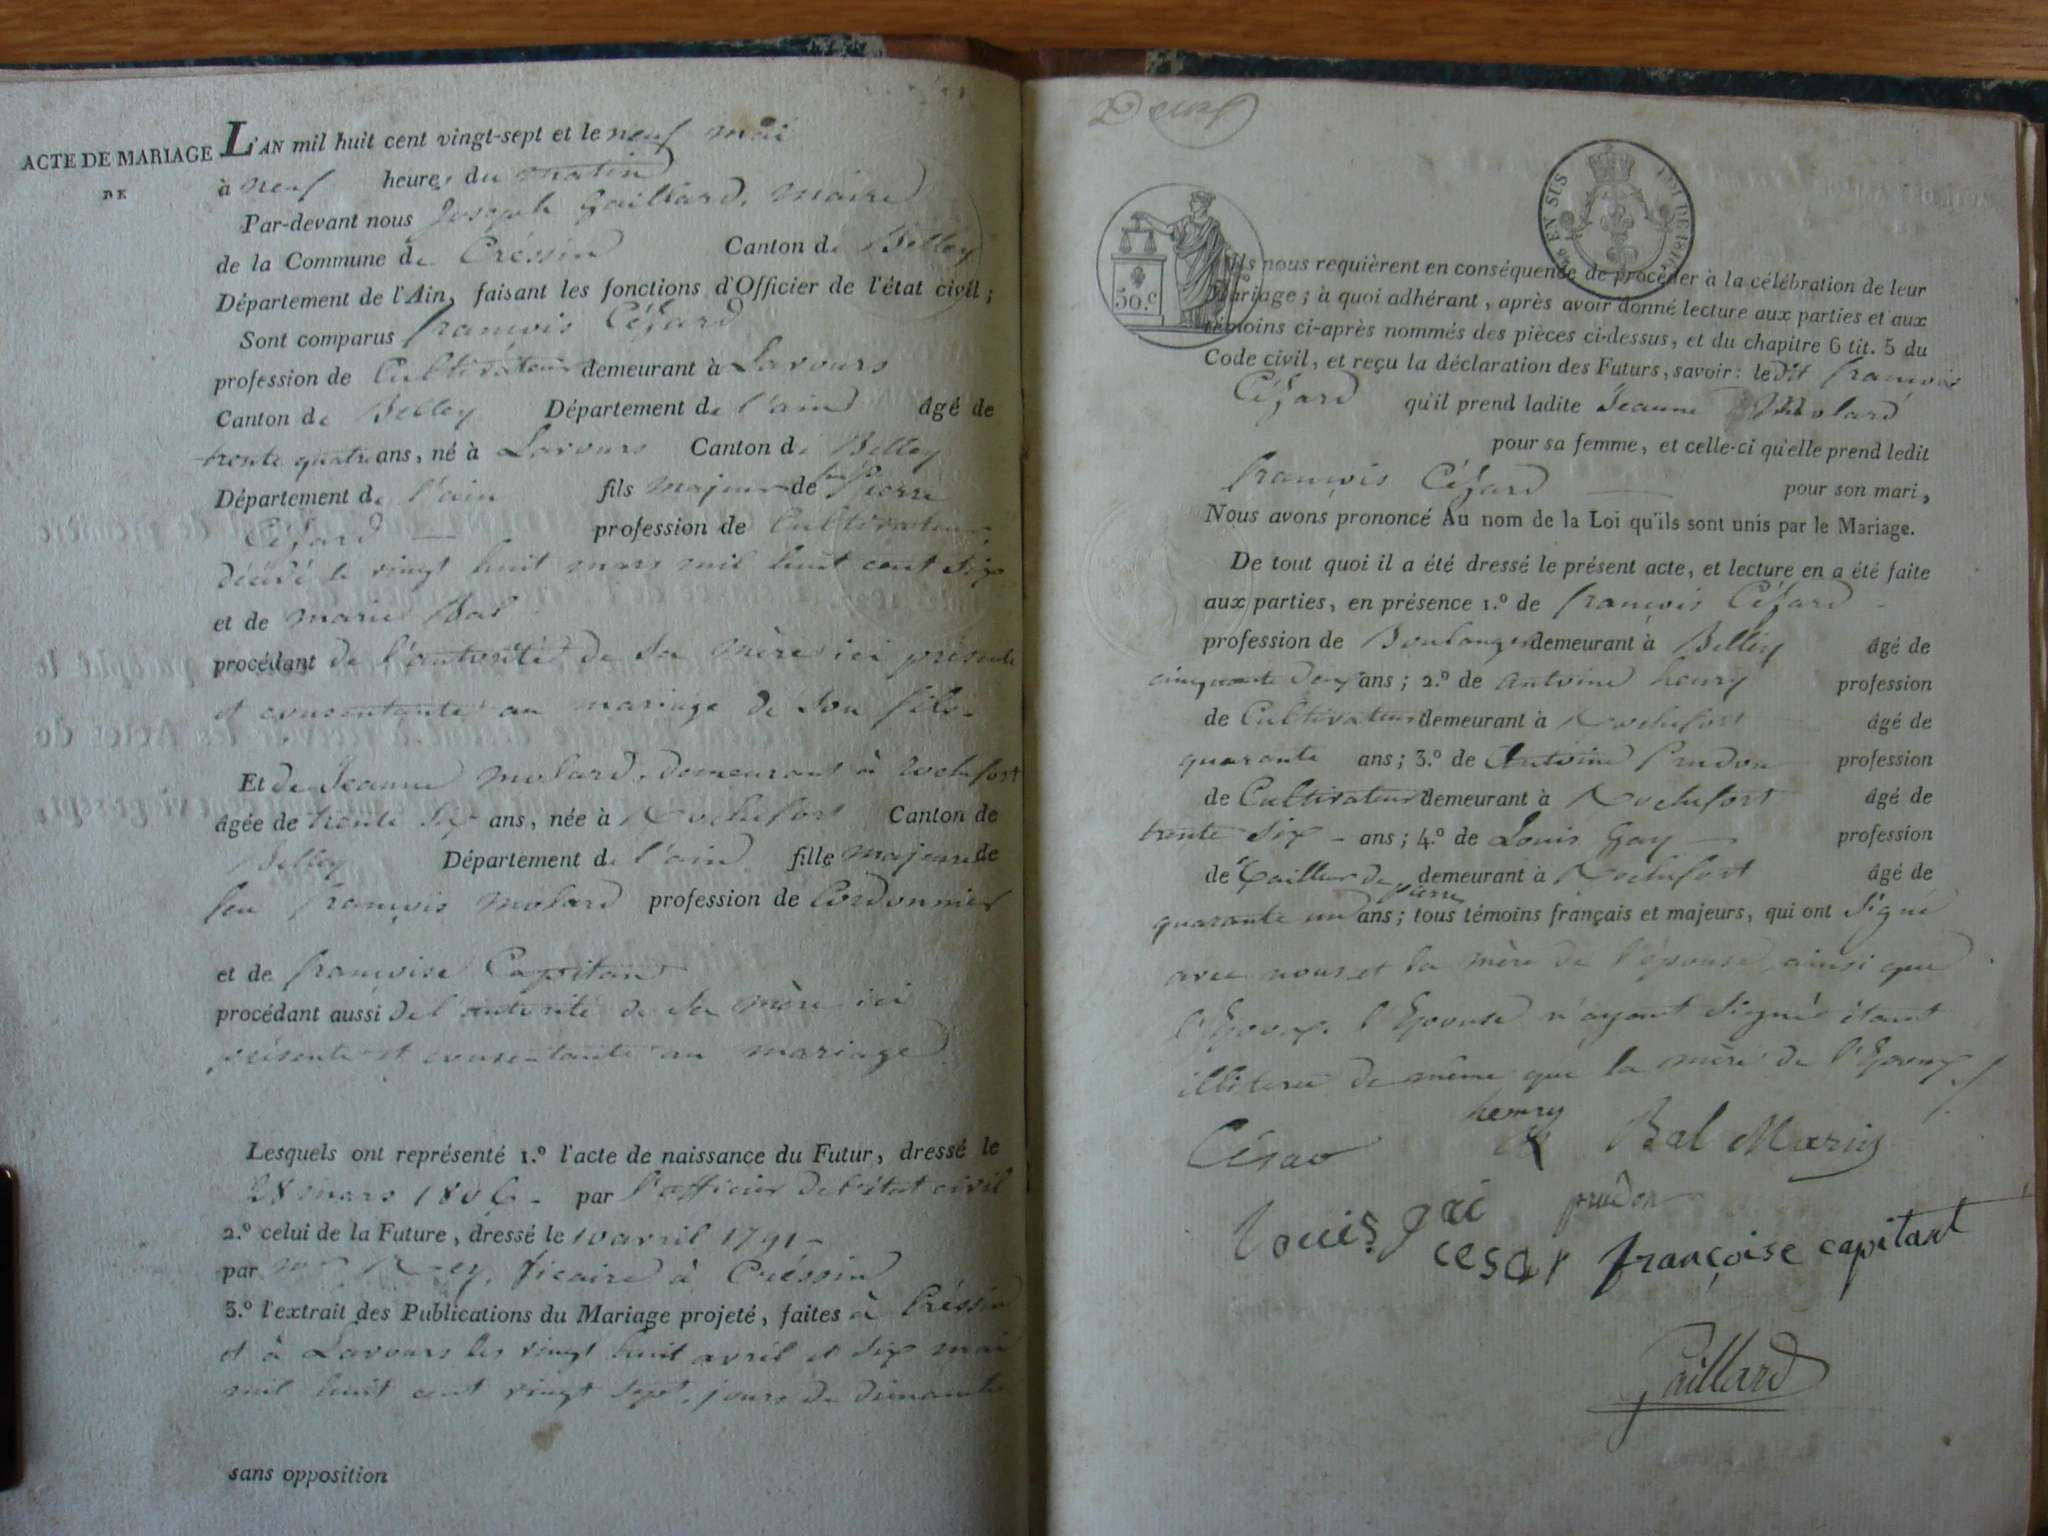 ACTE DE MARIAGE
DE
L'AN mil huit cent vingt-sept et le neuf mai
à neuf heures du matin
Par-devant nous Joseph Gaillard, maire
de la Commune de Cressin Canton de Belley
Département de l'Ain, faisant les fonctions d'Officier de l'état civil;
Sont comparus françois Cézard
profession de Cultivateur demeurant à Lavours
Canton de Belley Département de l'ain âgé de
trente quatre ans, né à Lavours Canton de Belley
Département de l'ain fils majeur de feu Pierre
Cézard profession de Cultivateur
décédé le vingt huit mars mil huit cent six
et de marie Bal
procédant de l'autorité de sa mère ici présente
et consentante au mariage de son fils.
Et de Jeanne molard, demeurant à rochefort
âgée de trente six ans, née à Rochefort Canton de
Belley Département de l'ain fille majeure de
feu françois molard profession de Cordonnier
et de françoise Capitant
procédant aussi de l'autorité de sa mère ici
présente et consentante au mariage
Lesquels ont représenté 1.º l'acte de naissance du Futur, dressé le
28 mars 1806 - par l'officier de l'état civil
2.º celui de la Future, dressé le 10 avril 1791 -
par mr Rey, vicaire à Cressin
3.º l'extrait des Publications du Mariage projeté, faites à Cressin
et à Lavours les vingt huit avril et six mai
mil huit cent vingt sept, jours de dimanche
sans opposition
30.c
EN SUS
Ils nous requièrent en conséquence de procéder à la célébration de leur
mariage; à quoi adhérant, après avoir donné lecture aux parties et aux
témoins ci-après nommés des pièces ci-dessus, et du chapitre 6 tit. 5 du
Code civil, et reçu la déclaration des Futurs, savoir: ledit françois
Cézard qu'il prend ladite Jeanne Molard
pour sa femme, et celle-ci qu'elle prend ledit
françois Cézard pour son mari,
Nous avons prononcé Au nom de la Loi qu'ils sont unis par le Mariage.
De tout quoi il a été dressé le présent acte, et lecture en a été faite
aux parties, en présence 1.º de françois Cézard -
profession de Boulanger demeurant à Belley âgé de
cinquante deux ans; 2.º de antoine henry profession
de Cultivateur demeurant à Rochefort âgé de
quarante ans; 3.º de Antoine Prudon profession
de Cultivateur demeurant à Rochefort âgé de
trente six - ans; 4.º de Louis Gay - profession
de Tailleur de pierre demeurant à Rochefort âgé de
quarante un ans; tous témoins français et majeurs, qui ont signé
avec nous et la mère de l'épouse, ainsi que
l'Epoux, l'Epouse n'ayant signé étant
illiterée de même que la mère de l'Epoux
henry
Bal Marie
Louis gai prudon
cesar françoise capitant
Gaillard